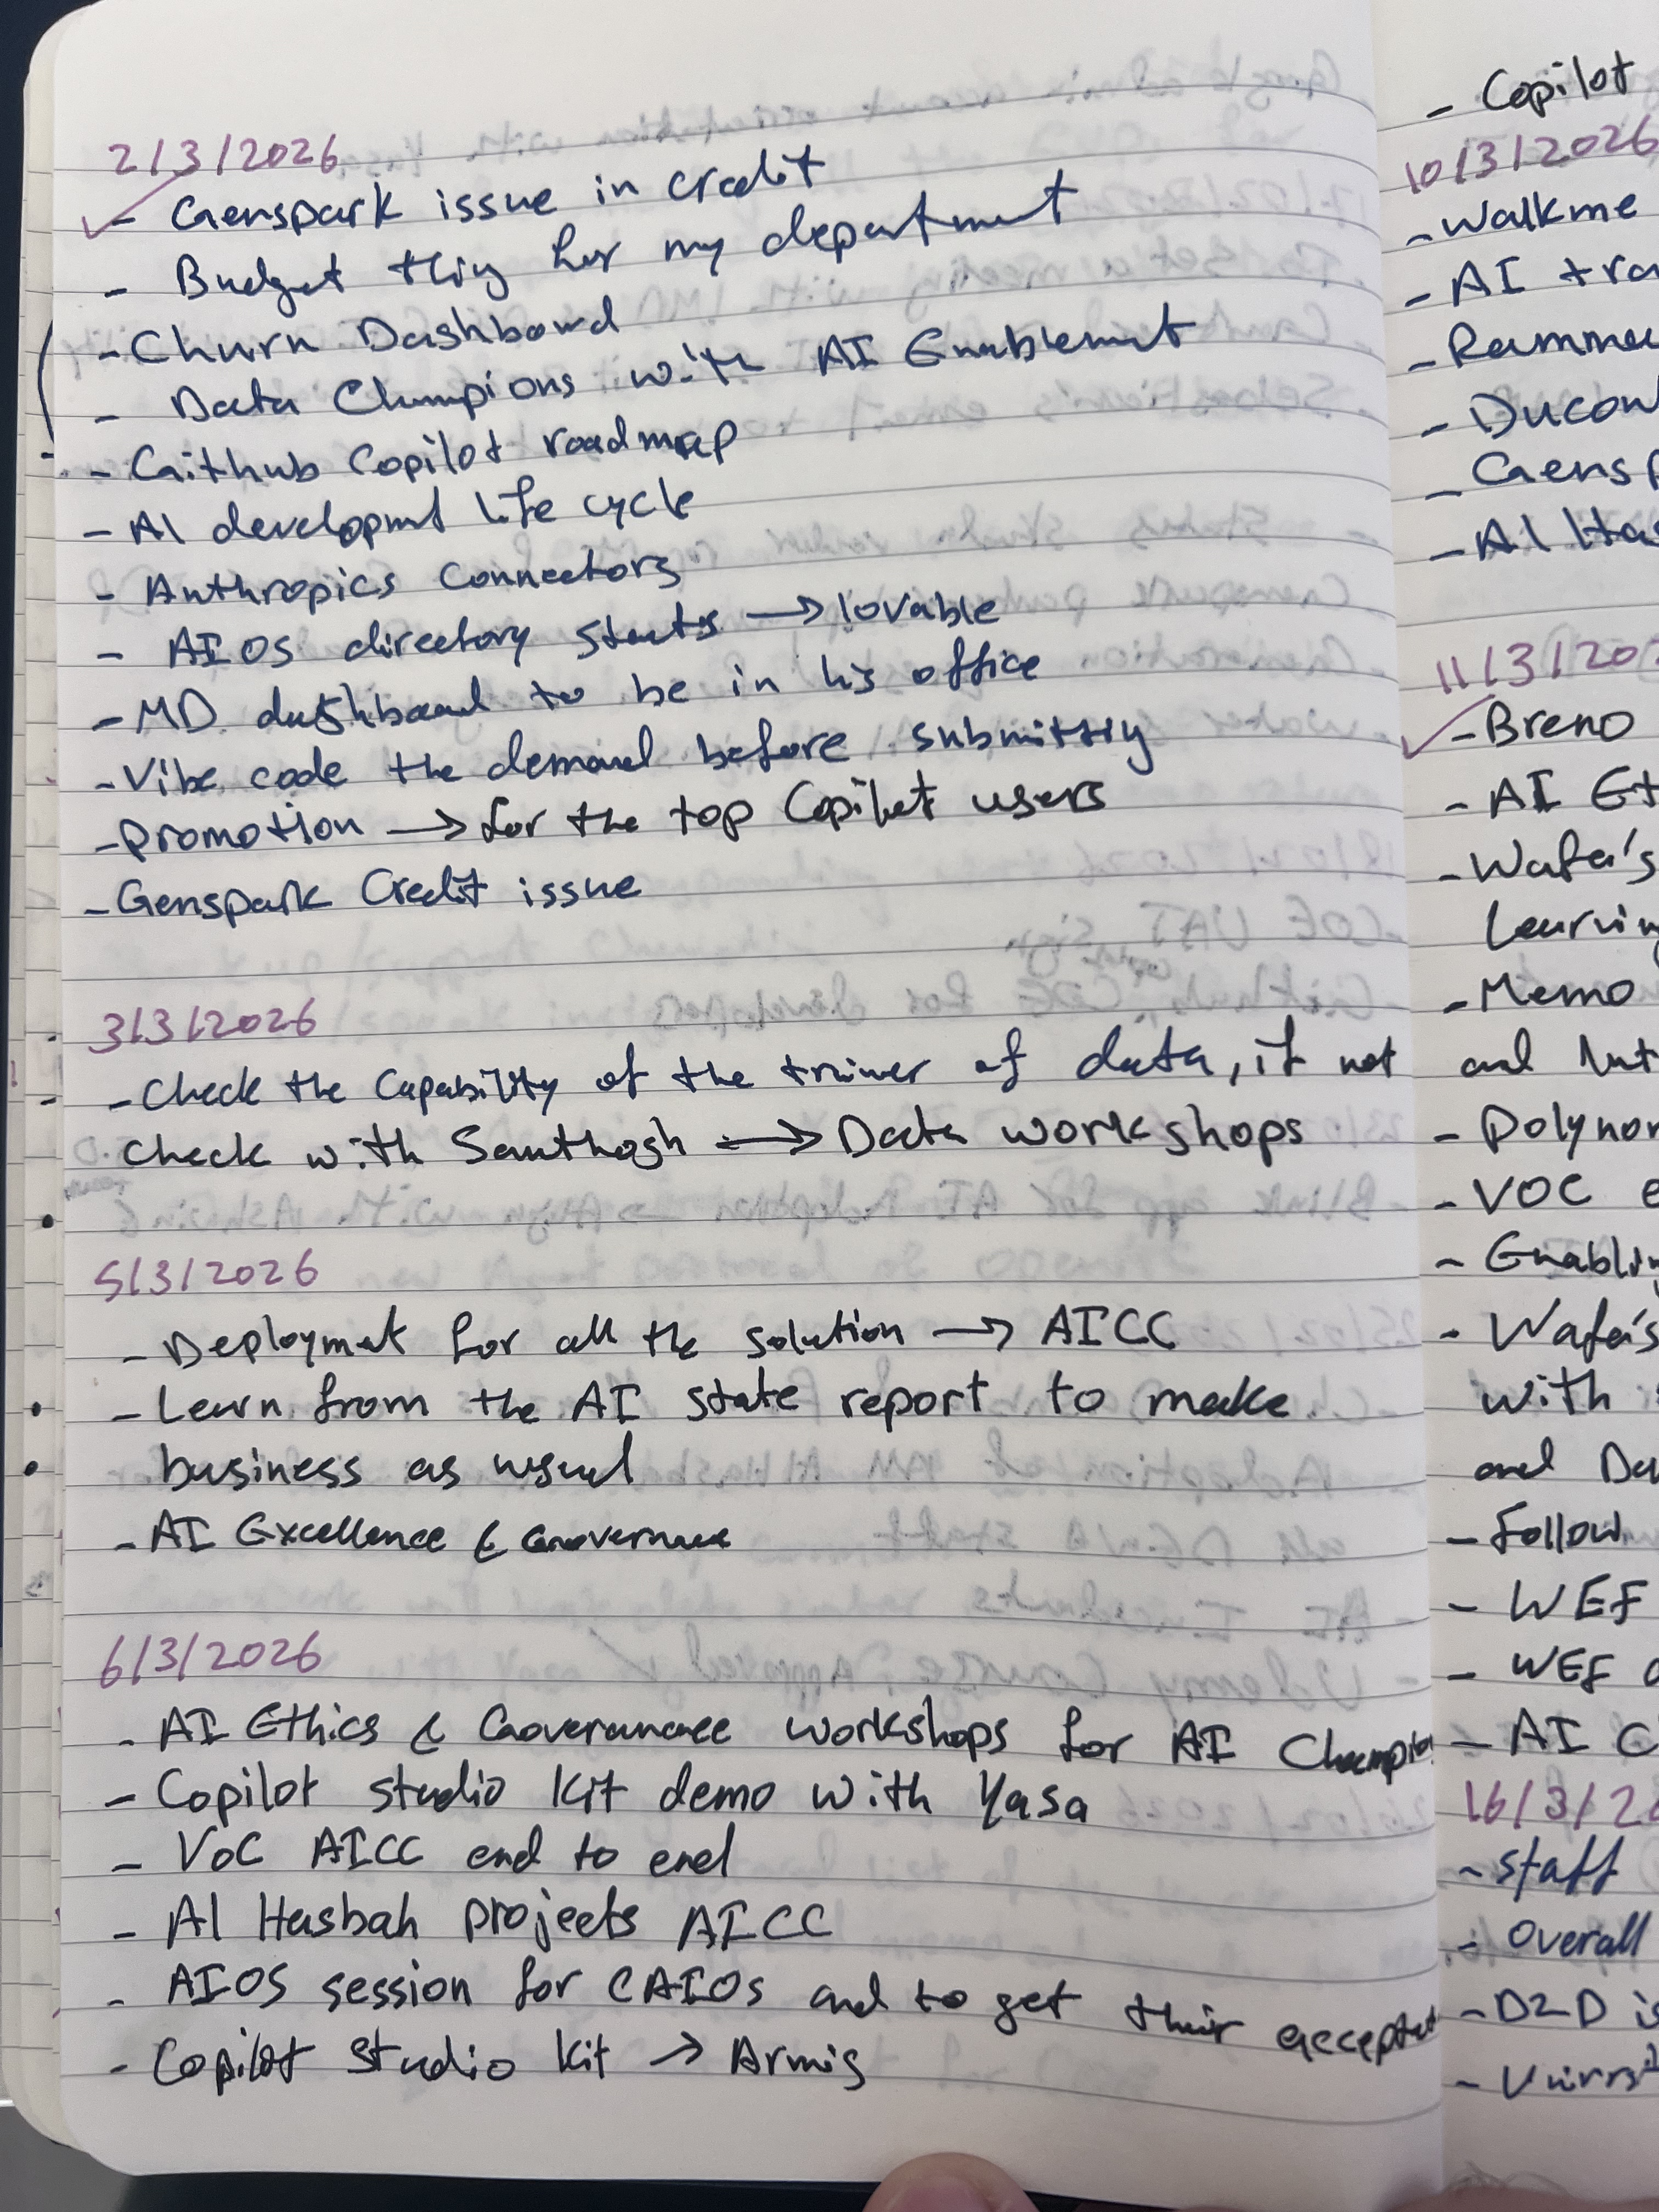 2/3/2026
- Genspark issue in credit
- Budget thing for my department
- Churn Dashboard
- Data Champions with AI Enablement
- Github Copilot roadmap
- AI development life cycle
- Anthropics Connectors
- AIOS directory starts → lovable
- MD dashboard to be in his office
- Vibe code the demand before submitting
- Promotion → for the top Copilot users
- Genspark Credit issue
3/3/2026
- Check the Capability of the trainer of data, if not
check with Santhosh → Data workshops
5/3/2026
- Deployment for all the solution → AICC
- Learn from the AI state report to make
business as usual
- AI Excellence & Governance
6/3/2026
- AI Ethics & Goverancee workshops for AI Champions
- Copilot studio Kit demo with Yasa
- VoC AICC end to end
- Al Hasbah projects AICC
- AIOS session for CAIOs and to get their
- Copilot Studio Kit → Armis
- Copilot
10/3/2026
- Walkme
- AI tra
- Ducow
- Gensp
- Al Has
11/3/202
- Breno
- AI Et
- Wafa's
Learning
- Memo
and
- Polynom
- VOC e
- Enabling
- Wafa's
with
and Da
- Follow
- WEF
- WEF
- AI C
16/3/2
- Staff
- Overall
- D2D is